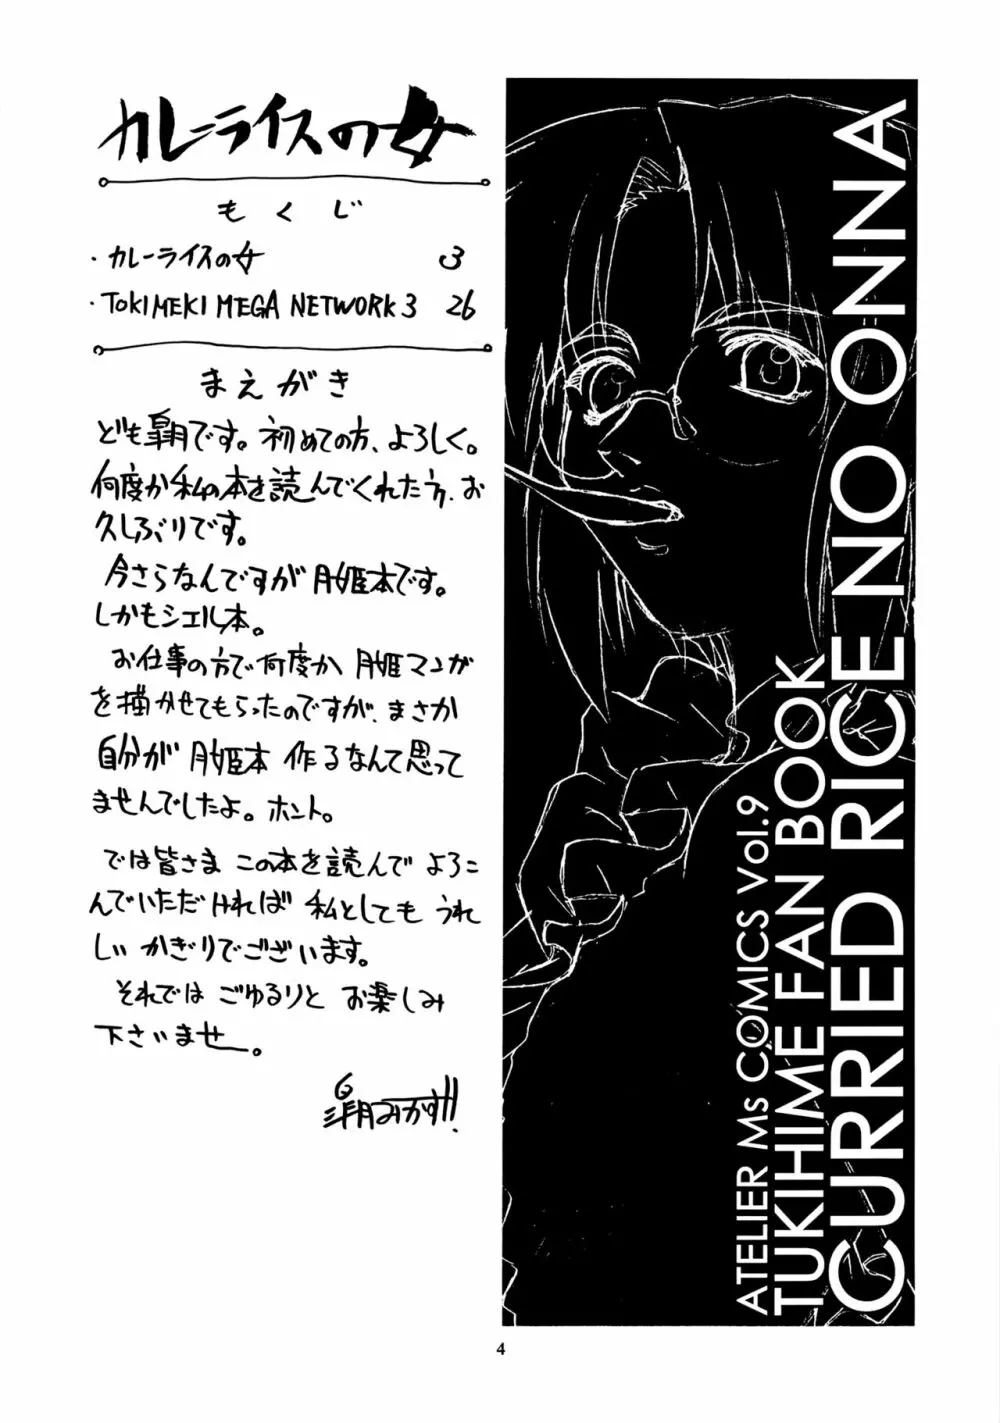 カレーライスの女
もくじ
・カレーライスの女 3
・TOKIMEKI MEGA NETWORK 3 26
まえがき
ども皐月です。初めての方、よろしく。
何度か私の本を読んでくれた方、お
久しぶりです。
今さらなんですが月姫本です。
しかもシエル本。
お仕事の方で何度か月姫マンガ
を描かせてもらったのですが、まさか
自分が月姫本作るなんて思って
ませんでしたよ。ホント。
では皆さまこの本を読んでよろこ
んでいただければ私としてもうれ
しいかぎりでございます。
それではごゆるりとお楽しみ
下さいませ。
みかず!!
ATELIER Ms COMICS Vol.9
TUKIHIME FAN BOOK
CURRIED RICE NO ONNA
4